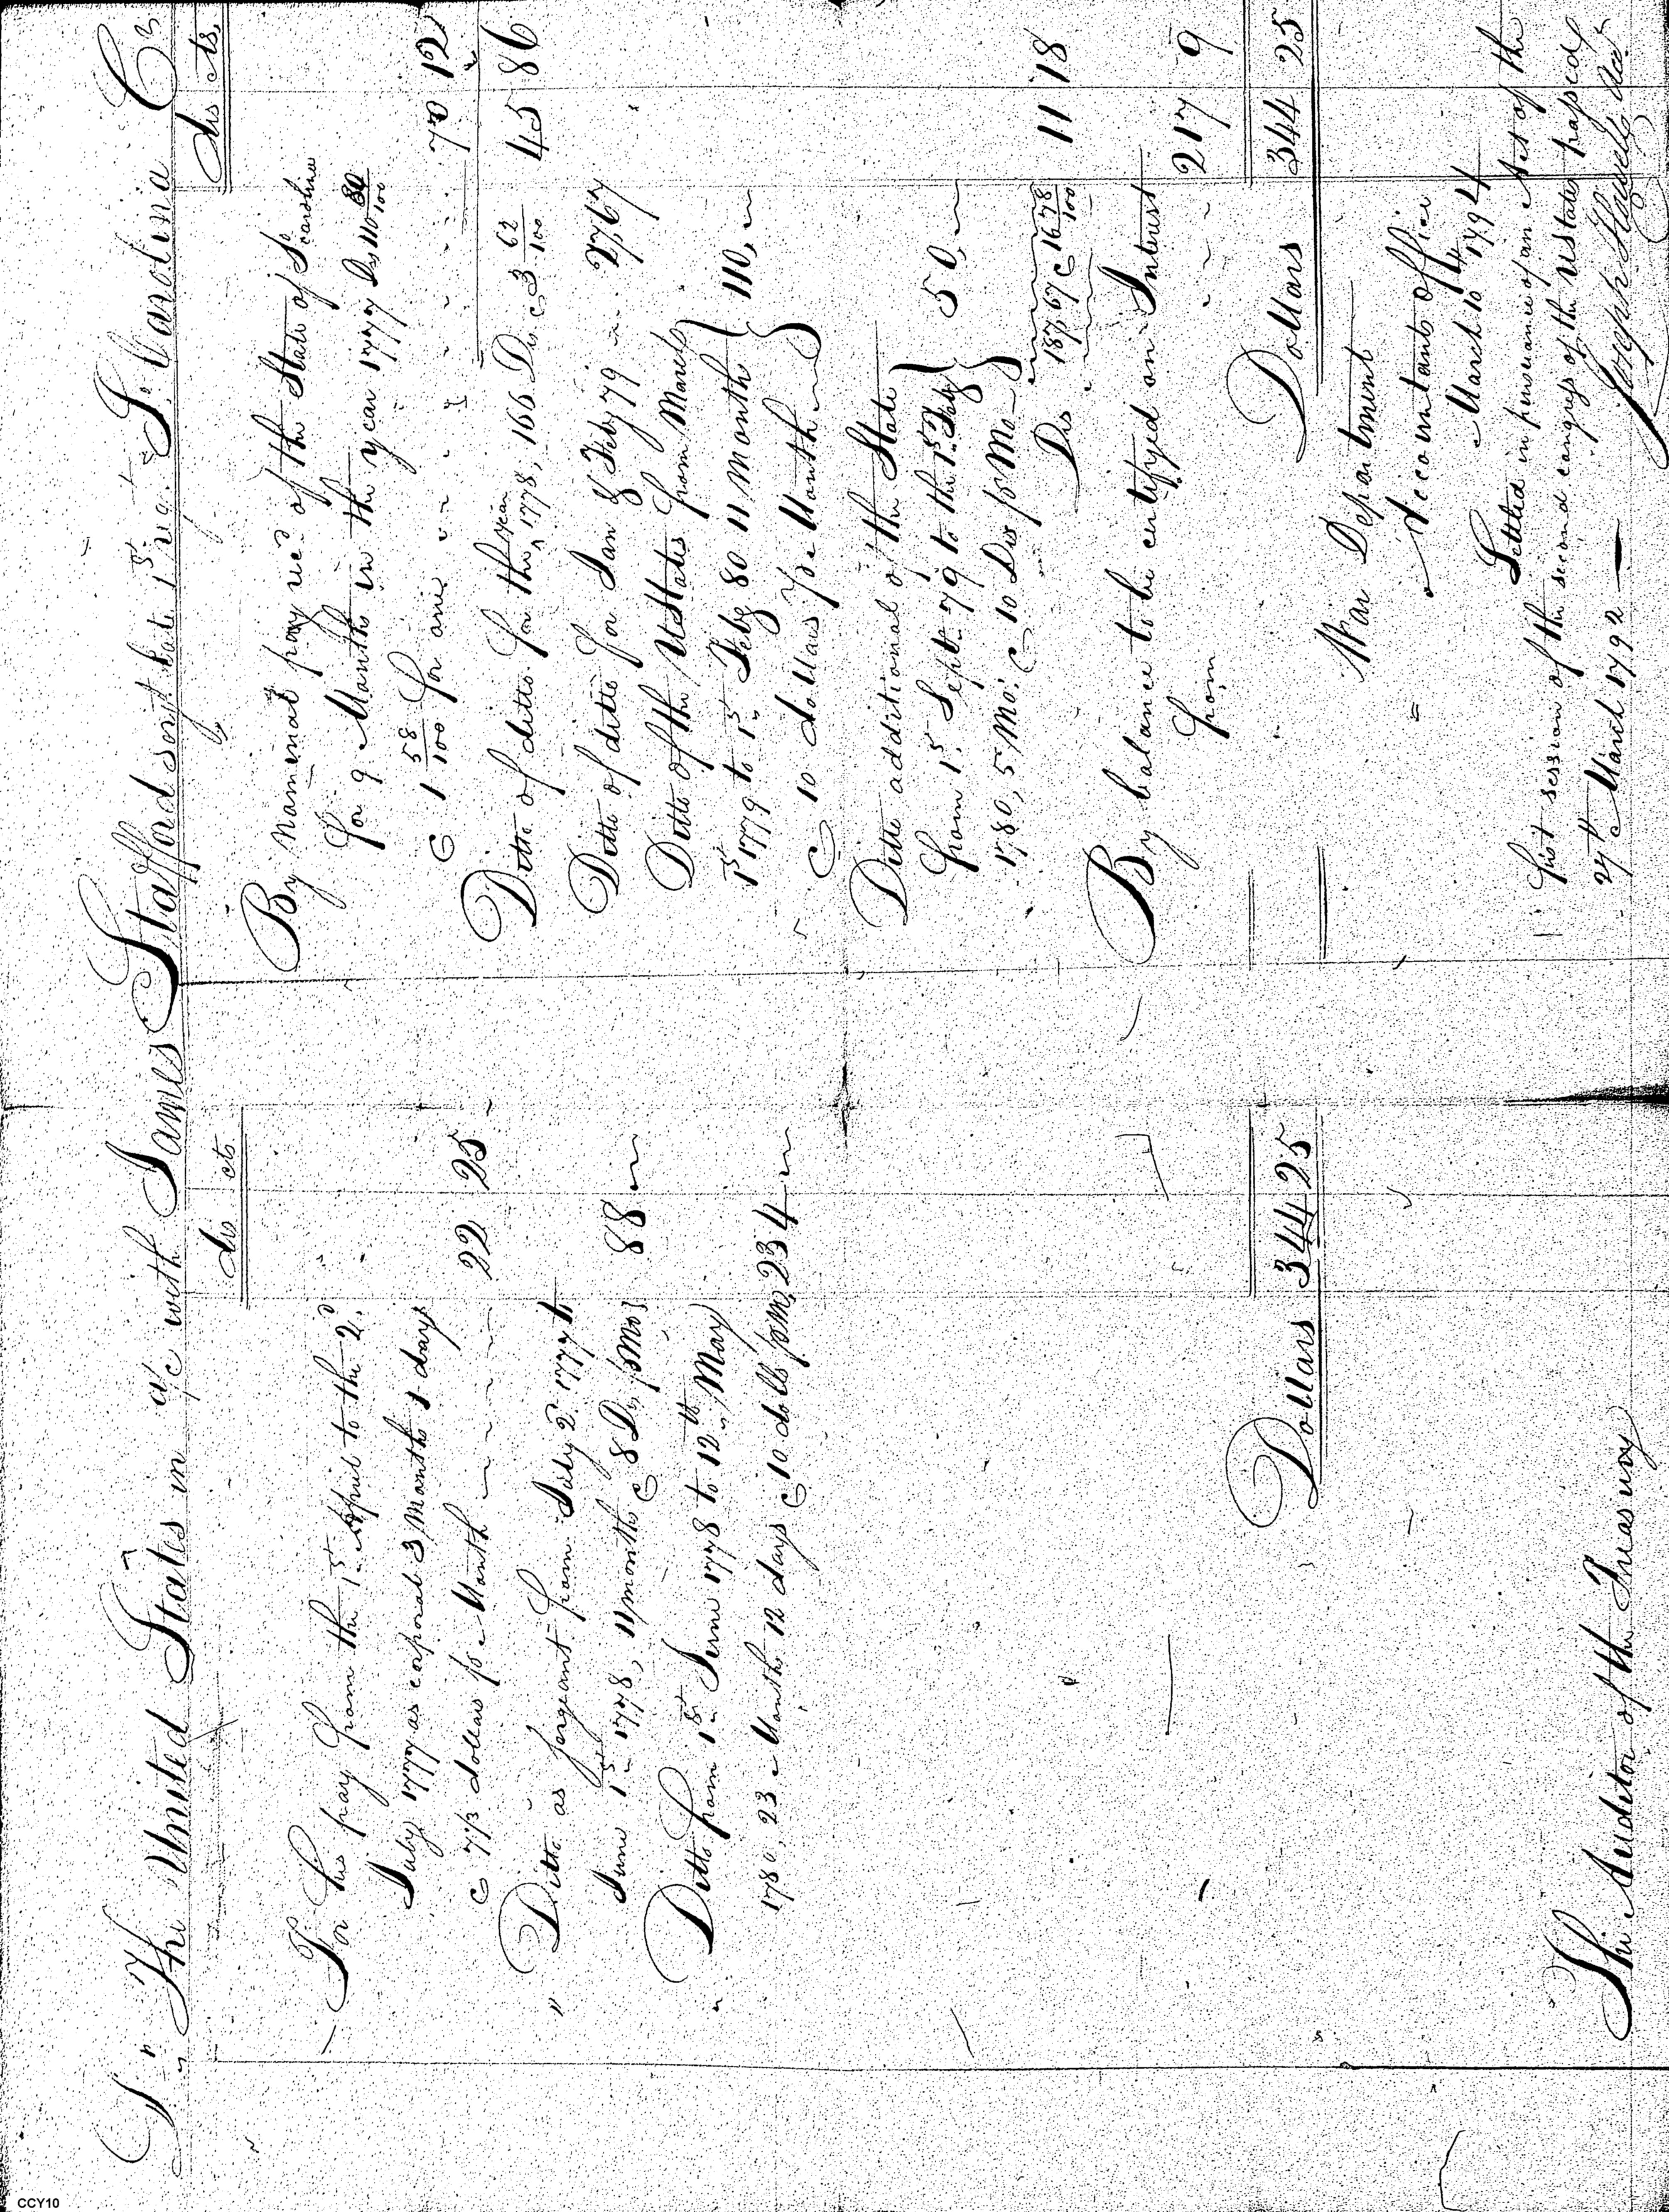 Dr The United States in a/c with James Stafford serjt late 1st rig. So Carolina Cr
drs cts
For his pay from the 1st April to the 2d
July 1777 as corporal 3 Months 1 day
@ 7 1/3 dollars pr Month 22 25
" Ditto as sergeant from July 2d 1777 to
June 1st 1778, 11 months @ 8 Drs pr Mo 88
" Ditto from 1st June 1778 to 12th May
1780, 23 Months 12 days @ 10 dolls pr Mo, 234
Dollars 344 25
The Auditor of the Treasury
drs cts,
By Nominal pay recd of the State of So carolina
for 9 Months in the year 1777 Drs 110 80/100
@ 1 58/100 for one 70 12
Ditto of ditto for the year 1778, 166 Drs @ 3 62/100 45 86
Ditto of ditto for Jan & Feby 79 27,67
Ditto of the UStates from March
1st 1779 to 1st Feby 80 11 Months } 110,
@ 10 dollars pr Month
Ditto additional of the State
from 1st Sept. 79 to the 1st Feby } 50,
1780, 5 Mo: @ 10 Drs pr Mo
Drs 187,67 @ 16 78/100 11 18
By balance to be certifyed on Interest
from 217 9
Dollars 344 25
War Department
Accountants office
March 10th 1794
Settled in pursuance of an Act of the
first session of the second congress of the UStates passed
27th March 1792
Joseph Howell Acct
CCY10